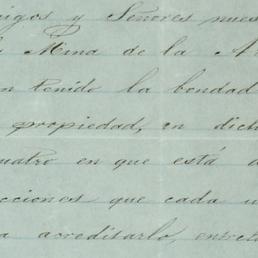 igos y Señores nues
Mina de la A
n tenido la bondad
propiedad, en dich
uatro en que está d
cciones que cada u
a acreditarlo, entre